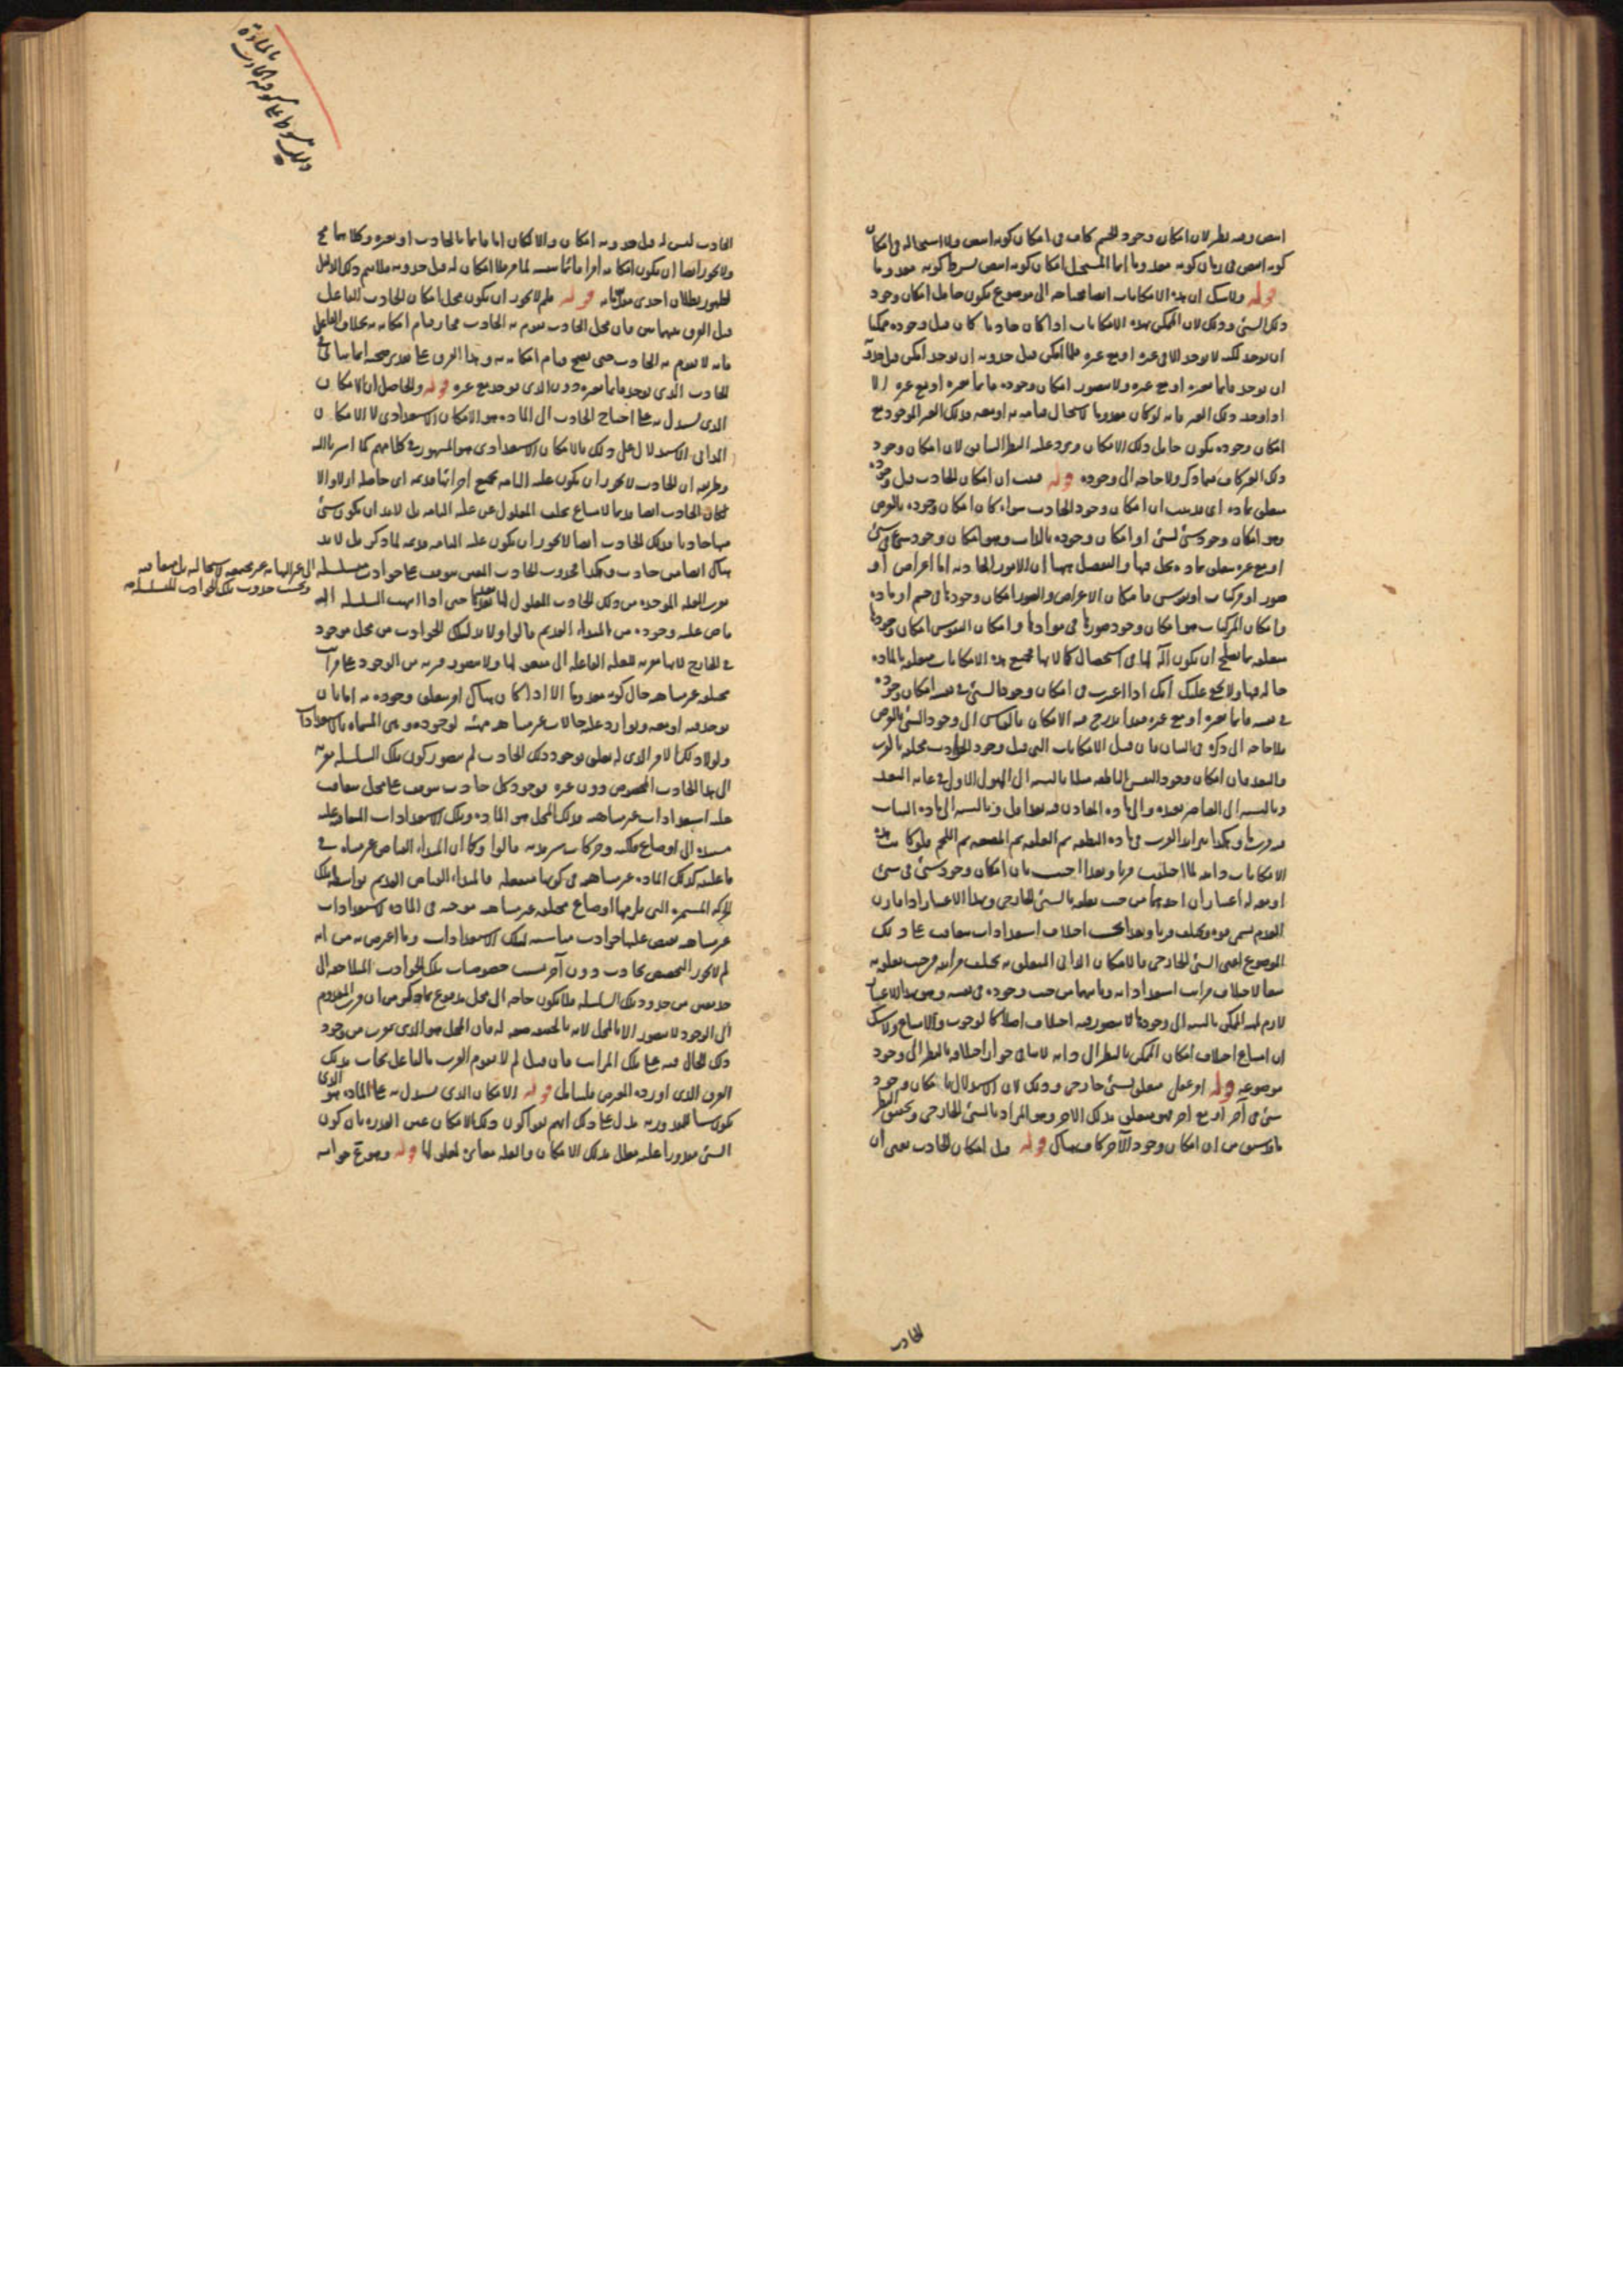 ابيض وفيه نظر لان امكان وجود الجسم كاف في امكان كونه ابيض ولا استحالة في امكان
كونه ابيض في زمان كونه معدوما انما المستحيل امكان كونه ابيض بشرط كونه معدوما
قوله ولا شك ان هذه الامكانات ايضا محتاجة الى موضوع يكون حامل امكان وجود
ذلك الشئ وذلك لان الممكن بهذه الامكانات اذا كان حادثا كان قبل وجوده ممكنا
ان يوجد لكنه لا يوجد الا في غيره او مع غيره فلما امكن قبل حدوثه ان يوجد امكن قبل
ان يوجد قائما بغيره او مع غيره ولا يتصور امكان وجوده قائما بغيره او مع غيره الا
اذا وجد ذلك الغير فانه لو كان معدوما لاستحال قيامه به او معه فذلك الغير الموجود مع
امكان وجوده يكون حامل ذلك الامكان ويرد عليه النظر السابق لان امكان وجود
ذلك الغير كاف فيما ذكر ولا حاجة الى وجوده قوله فثبت ان امكان الحادث قبل وجوده
متعلق بمادة اي فثبت ان امكان وجود الحادث سواء كان امكان وجوده بالعرض
وهو امكان وجود شئ لشئ او امكان وجوده بالذات وهو امكان وجود شئ في شئ
او مع غيره متعلق بمادة يحل فيها والتفصيل ههنا ان الامور الحادثة اما اعراض او
صور او مركبات او نفوس فامكان الاعراض والصور امكان وجودها في جسم او مادة
وامكان المركبات هو امكان وجود صورها في موادها وامكان النفوس امكان وجودها
متعلقة بما يصلح ان يكون آلة لها في استحصال كمالاتها فجميع هذه الامكانات متعلقة بالمادة
حالة فيها ولا يخفى عليك انك اذا اعتبرت في امكان وجود الشئ في نفسه امكان وجوده
في نفسه قائما بغيره او مع غيره فقد اندرج فيه الامكان بالقياس الى وجود الشئ بالعرض
فلا حاجة الى ذكره في البيان فان قيل الامكانات التي قبل وجود الحوادث مختلفة بالقرب
والبعد فان امكان وجود النفس الناطقة مثلا بالنسبة الى الهيولى الاولى في غاية البعد
وبالنسبة الى العناصر بعده والى مادة المعادن فيه بعد اقل وبالنسبة الى مادة النبات
وهكذا يتزايد القرب في مادة النطفة ثم العلقة ثم المضغة ثم اللحم فلو كانت هذه
الامكانات ذاتية لما اختلفت قربا وبعدا اجيب بان امكان وجود شئ في شئ
او معه له اعتباران احدهما من حيث تعلقه بالشئ الخارجي وبهذا الاعتبار اذا قارن
العدم يسمى قوة ويختلف قربا وبعدا بحسب اختلاف استعدادات متعاقبة على ذلك
الموضوع اعني الشئ الخارجي فالامكان الذاتي المتعلق به يختلف مراتبه من حيث تعلقه به
تبعا لاختلاف مراتب استعداداته وثانيهما من حيث وجوده في نفسه وهو بهذا الاعتبار
لازم لماهية الممكن بالنسبة الى وجودها لا يتصور فيه اختلاف اصلا كالوجوب والامتناع ولا شك
ان امتناع اختلاف امكان الممكن بالنظر الى ذاته لا ينافي جواز اختلافه بالنظر الى وجود
موضوعه قوله او عقلي متعلق بشئ خارجي وذلك لان الاستدلال بامكان وجود
شئ في آخر او مع آخر هو متعلق بذلك الآخر وهو المراد بالشئ الخارجي
ما سبق من ان امكان وجود الآخر كاف هناك قوله قيل امكان الحادث يعني ان
الحادث
بالمادة
الحادث ليس له قبل حدوثه امكان والا لكان اما قائما بالحادث او بغيره وكلاهما مح
ولا يجوز ايضا ان يكون امكانه امرا قائما بنفسه لما مر فلا امكان له قبل حدوثه فلا يتم ذلك الدليل
لظهور بطلان احدى مقدماته قوله فلم لا يجوز ان يكون محل امكان الحادث الفاعل
قيل الفرق بينهما بين فان محل الحادث يقوم به الحادث فجاز قيام امكانه به بخلاف الفاعل
فانه لا يقوم به الحادث حتى يصح قيام امكانه به وهذا الفرق على تقدير صحته انما يتأتى في
الحادث الذي يوجد قائما بغيره دون الذي يوجد مع غيره قوله والحاصل ان الامكان
الذي يستدل به على احتياج الحادث الى المادة هو الامكان الاستعدادي لا الامكان
الذاتي الاستدلال على ذلك بالامكان الاستعدادي هو المشهور في كلامهم كما اشرنا اليه
وطريقه ان الحادث لا يجوز ان يكون علته التامة بجميع اجزائها قديمة اي حاصلة ازلا والا
لكان الحادث ايضا قديما لامتناع تخلف المعلول عن علته التامة بل لا بد ان يكون شئ
منها حادثا فذلك الحادث ايضا لا يجوز ان يكون علته التامة قديمة لما ذكر بل لا بد
هناك ايضا من حادث وهكذا فحدوث الحادث المعين يتوقف على حوادث متسلسلة
الى غير النهاية غير مجتمعة لاستحالته بل متعاقبة
وبحسب حدوث تلك الحوادث المتسلسلة
حتى اذا انتهت السلسلة اليه
فاض عليه وجوده من المبداء القديم قالوا ولا بد لتلك الحوادث من محل موجود
في الخارج لانها مقربة للعلة الفاعلة الى معلولها ولا يتصور قربه من الوجود على مراتب
مختلفة غير متناهية حال كونه معدوما الا اذا كان هناك امر متعلق وجوده به اما بان
يوجد فيه او معه ويتوارد عليه حالات غير متناهية مهيئة لوجوده وهي المسماة بالاستعدادات
ولولا ذلك الامر الذي له تعلق بوجود ذلك الحادث لم يتصور كون تلك السلسلة مقربة
الى هذا الحادث المخصوص دون غيره فوجود كل حادث يتوقف على محل يتعاقب
عليه استعدادات غير متناهية فذلك المحل هو المادة وتلك الاستعدادات المتعاقبة
مستندة الى اوضاع فلكية وحركات سرمدية قالوا وكما ان المبداء الفياض غير متناه في
فاعليته كذلك المادة غير متناهية في كونها منفعلة فالمبداء الفياض القديم بواسطة تلك
الحركة المستمرة التي يلزمها اوضاع مختلفة غير متناهية موجبة في المادة لاستعدادات
غير متناهية يفيض عليها حوادث مناسبة لتلك الاستعدادات وما اعترض به من انه
لم لا يجوز التخصيص بحادث دون آخر بسبب خصوصيات تلك الحوادث المتلاحقة الى
حد معين من حدود تلك السلسلة فلا يكون حاجة الى محل مدفوع بما ذكر من ان قرب المعدوم
الى الوجود لا يتصور الا بالمحل لانه بالحقيقة صفة له فان المحل هو الذي يقرب من وجود
ذلك الحال فيه على تلك المراتب فان قيل لم لا يقوم القرب بالفاعل يجاب بذلك
الفرق الذي اورده المعترض فليتأمل قوله الامكان الذي يستدل به على المادة هو الذي
يكون سببا للمقدورية يدل على ذلك انهم نفوا كون ذلك الامكان عين القدرة بان كون
الشئ مقدورا عليه معلل بذلك الامكان والعلة مغايرة لمعلولها قوله وهو مع جوابه